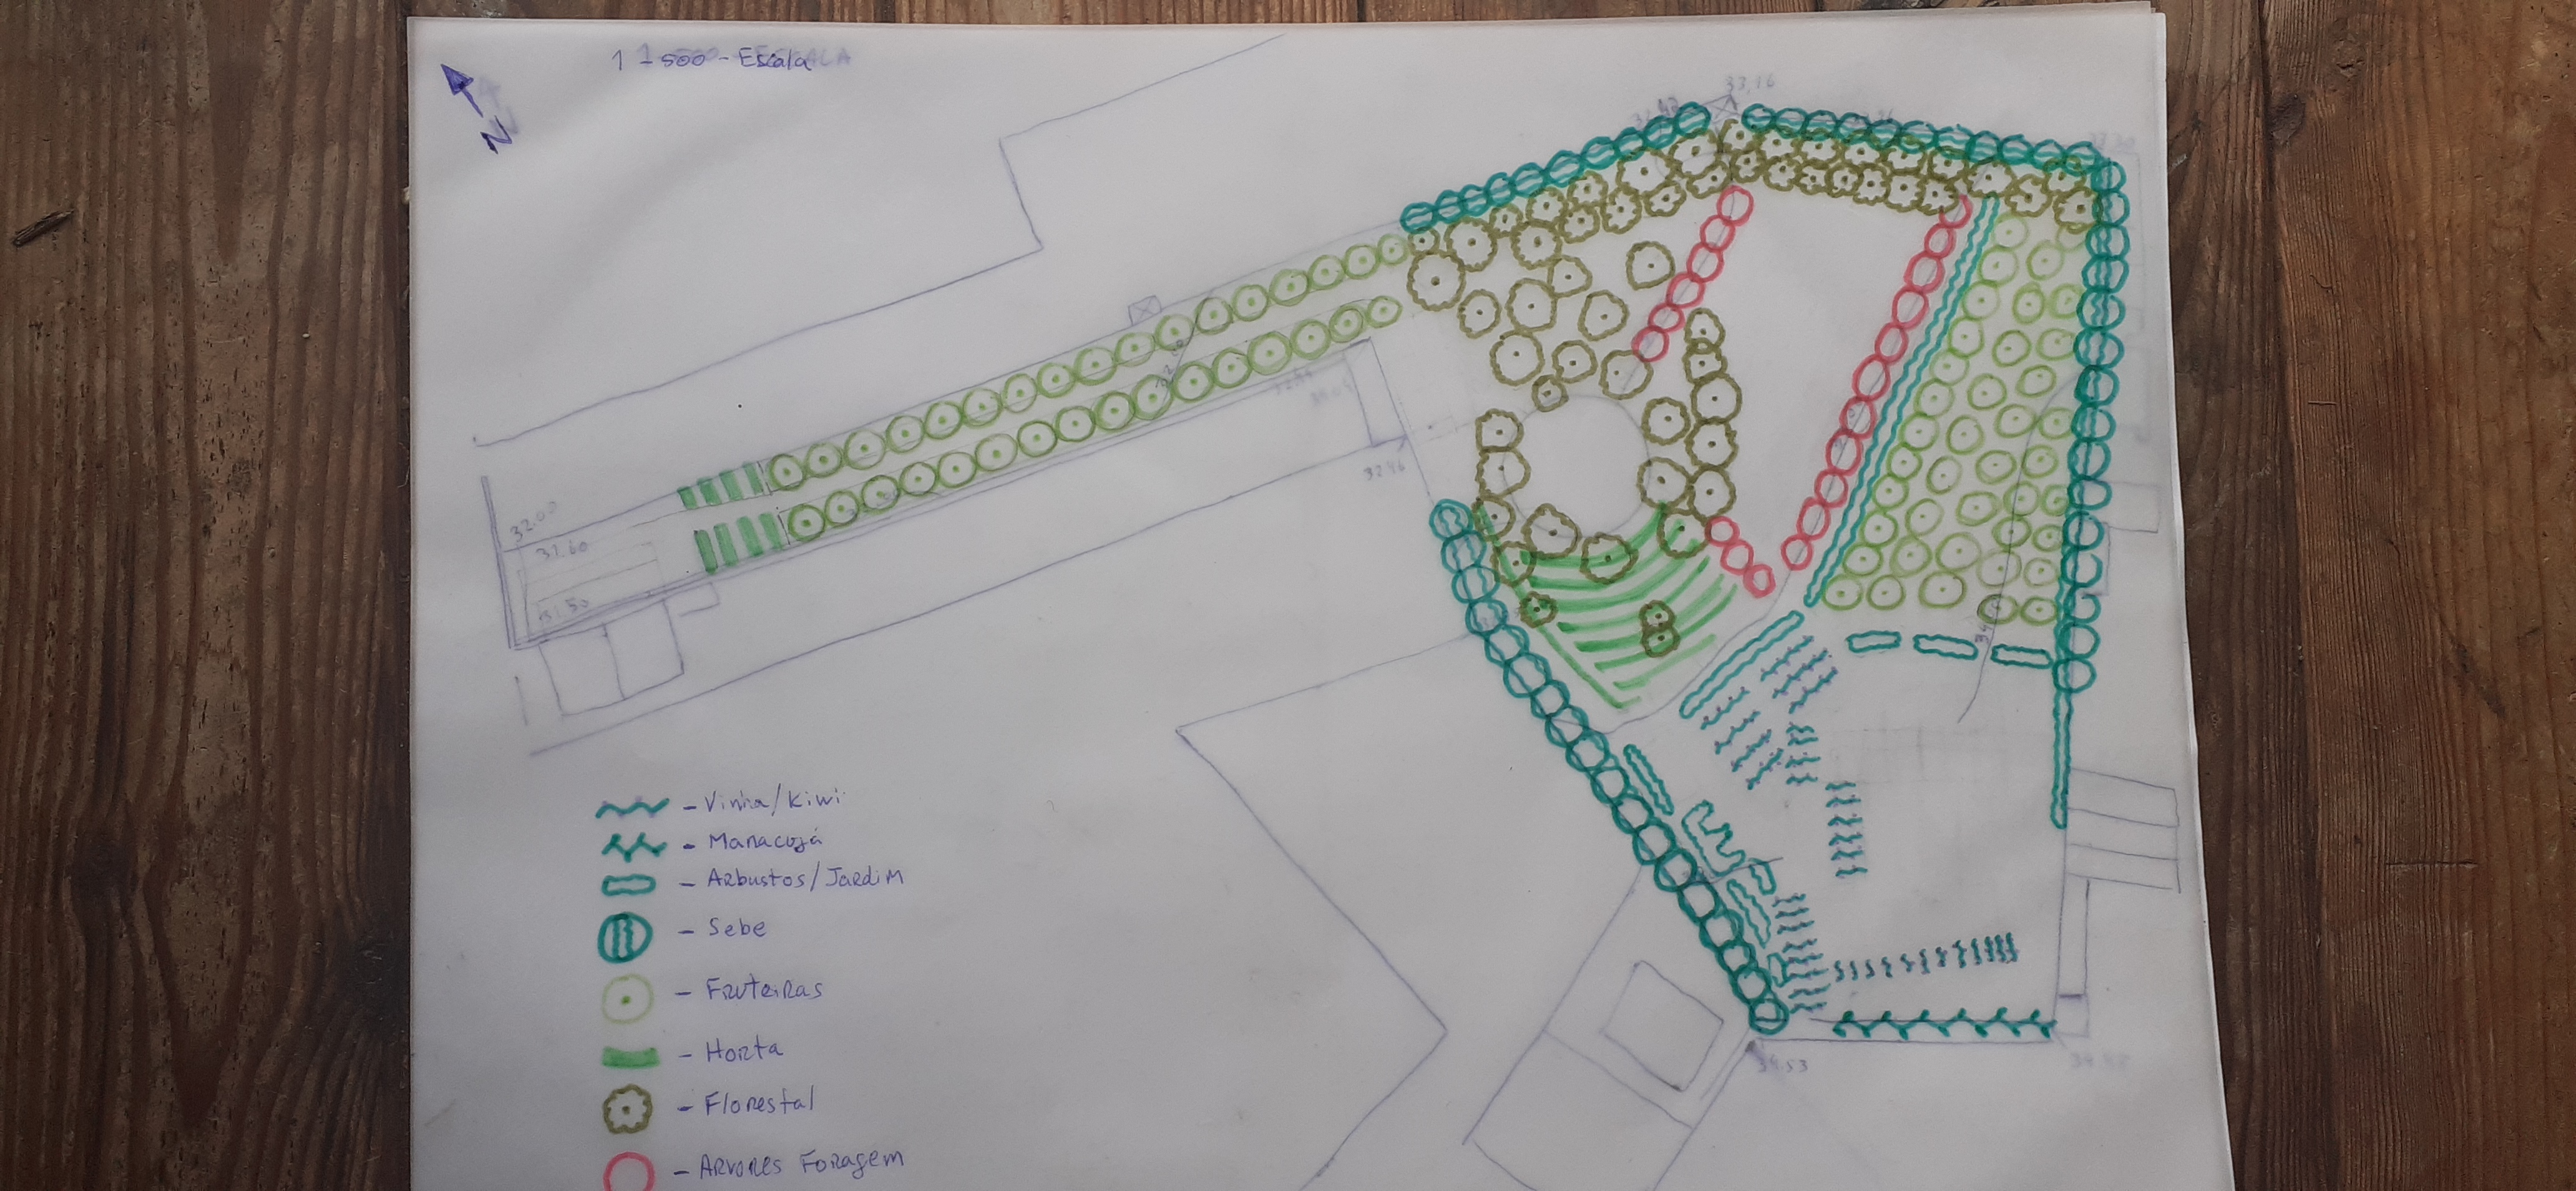 1-500 - Escala
N
33,16
32.00
31.60
31.50
32.46
34.53
- Vinha/Kiwi
- Maracujá
- Arbustos/Jardim
- Sebe
- Fruteiras
- Horta
- Florestal
- Arvores Foragem